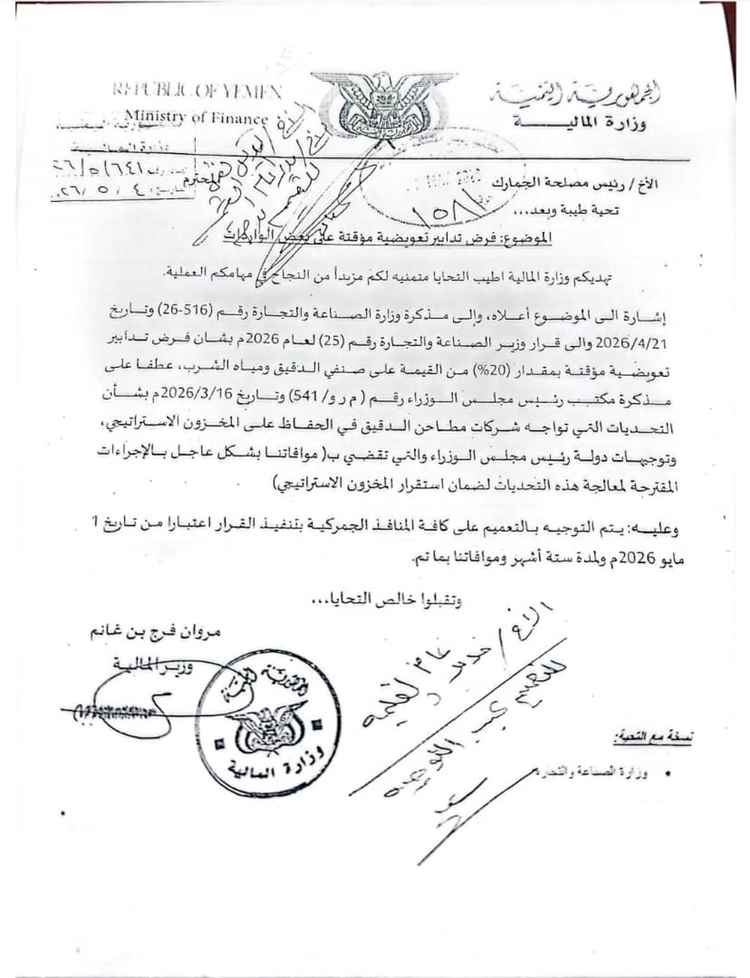 REPUBLIC OF YEMEN
Ministry of Finance
الجمهورية اليمنية
وزارة المالية
١٥٨١
الأخ / رئيس مصلحة الجمارك
المحترم
تحية طيبة وبعد...
الموضوع: فرض تدابير تعويضية مؤقتة على بعض الواردات
تهديكم وزارة المالية اطيب التحايا متمنيه لكم مزيداً من النجاح في مهامكم العملية.
إشارة الى الموضوع أعلاه، وإلى مذكرة وزارة الصناعة والتجارة رقم (516-26) وتاريخ
2026/4/21 والى قرار وزير الصناعة والتجارة رقم (25) لعام 2026م بشان فرض تدابير
تعويضية مؤقتة بمقدار (20%) من القيمة على صنفي الدقيق ومياه الشرب، عطفا على
مذكرة مكتب رئيس مجلس الوزراء رقم ( م ر و/ 541) وتاريخ 2026/3/16م بشأن
التحديات التي تواجه شركات مطاحن الدقيق في الحفاظ على المخزون الاستراتيجي،
وتوجيهات دولة رئيس مجلس الوزراء والتي تقضي ب( موافاتنا بشكل عاجل بالإجراءات
المقترحة لمعالجة هذه التحديات لضمان استقرار المخزون الاستراتيجي)
وعليه: يتم التوجيه بالتعميم على كافة المنافذ الجمركية بتنفيذ القرار اعتبارا من تاريخ 1
مايو 2026م ولمدة ستة أشهر وموافاتنا بما تم.
وتقبلوا خالص التحايا...
مروان فرج بن غانم
وزير المالية
الجمهورية اليمنية
وزارة المالية
نسخة مع التحية:
• وزارة الصناعة والتجارة